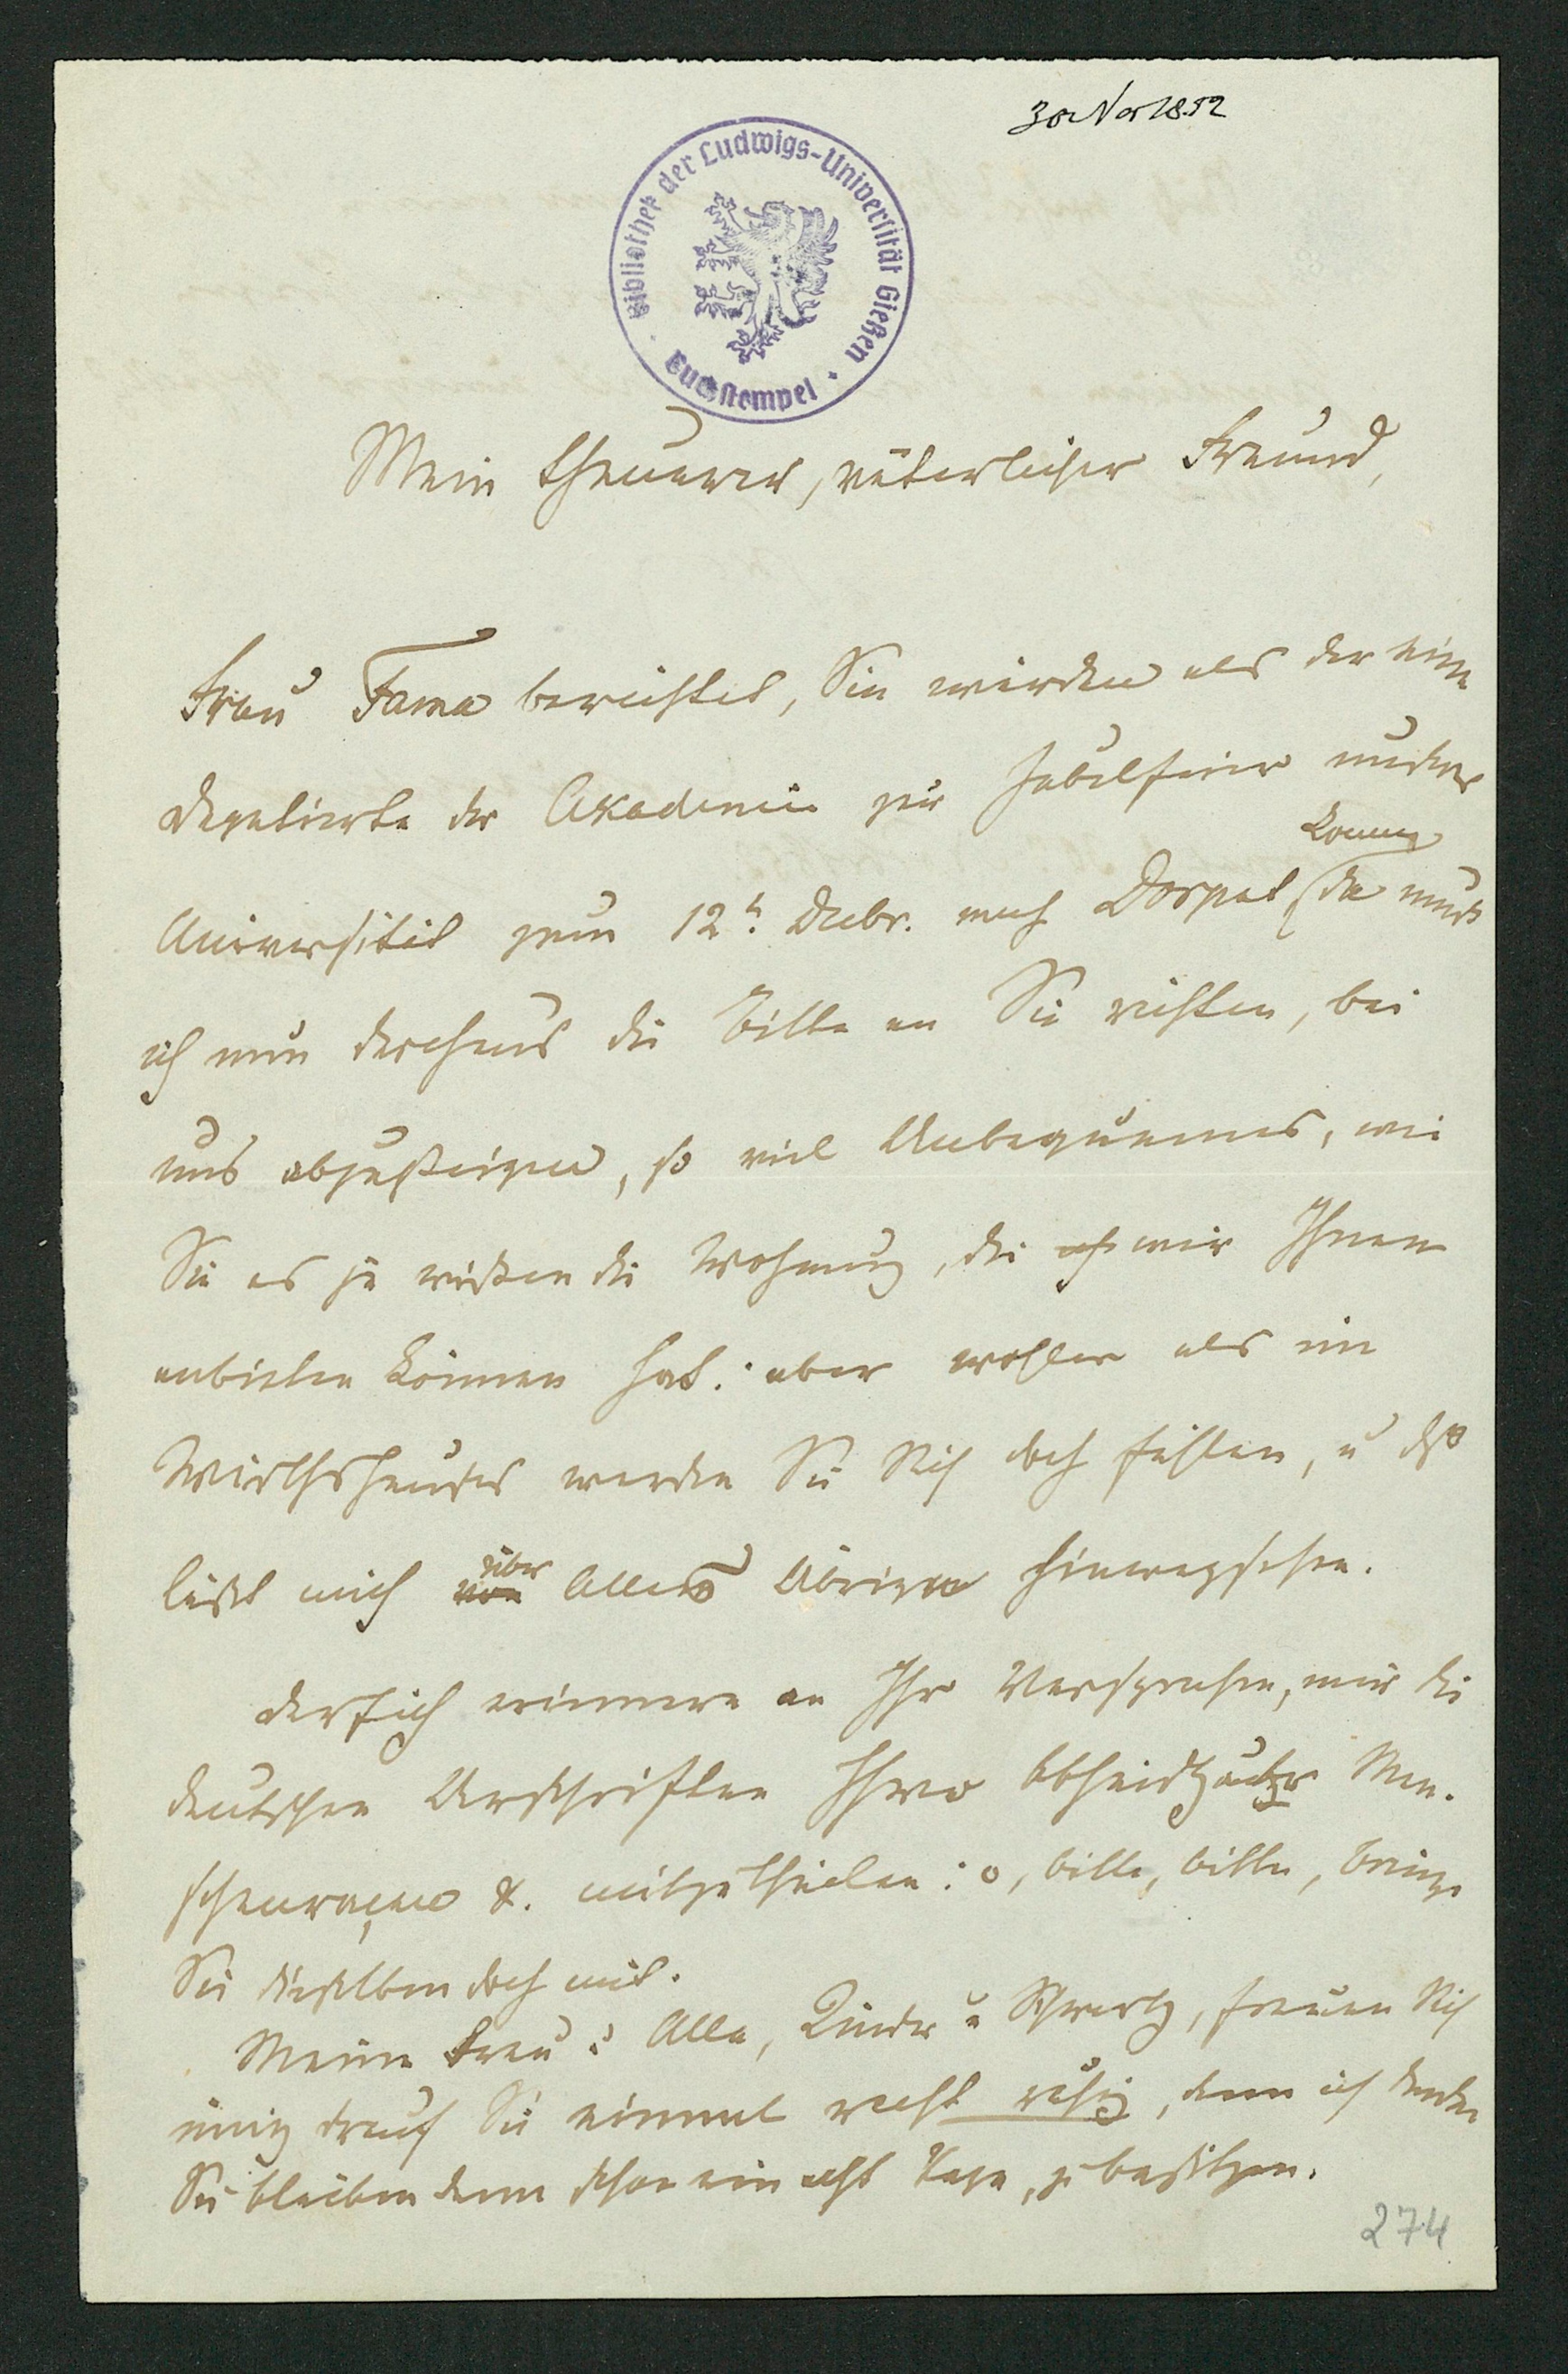 30 Nov 1852
Bibliothek der Ludwigs-Universität Gießen
Buchstempel
Mein theuerer, väterlicher Freund,
Frau Fama berichtet, Sie würden als der eine
Deputierte der Akademie zur Jubelfeier unsrer
Universität zum 12t. Decbr. nach Dorpat kommen, da muß
ich nun durchaus die Bitte an Sie richten, bei
uns abzusteigen, so viel Unbequemes, wie
Sie es ja wissen die Wohnung, die wir Ihnen
anbieten können hat: aber wohler als im
Wirthshause werden Sie Sich doch fühlen, u. das
läßt mich über Alles Übrige hinwegsehen.
Darf ich erinnern an Ihr Versprechen, mir die
deutschen Urschriften Ihrer Men-
schenraçen &. mitzutheilen: o, bitte, bitte, bringen
Sie dieselben doch mit.
Meine Frau u. Alle, Kinder u. Schwartz, freuen Sich
innig drauf Sie einmal recht ruhig, denn ich denke
Sie bleiben denn schon ein acht Tage, zu besitzen.
274